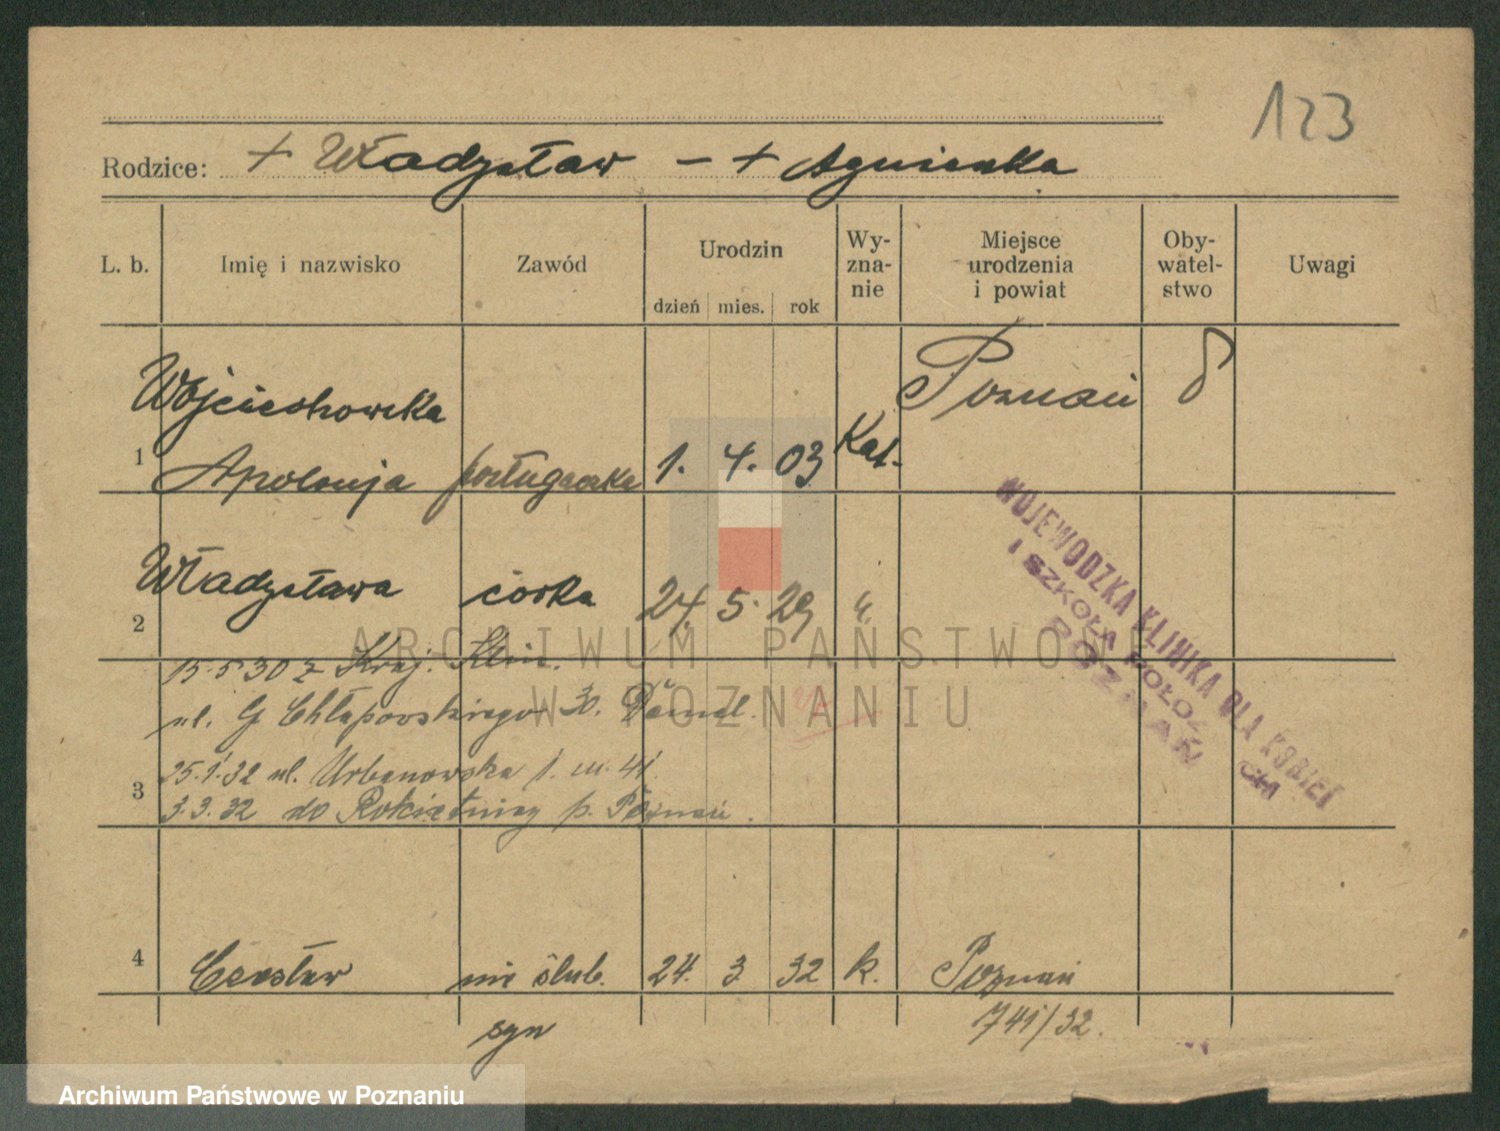 123
Rodzice: + Władysław - + Agnieszka
L. b. Imię i nazwisko Zawód Urodzin dzień mies. rok Wy-zna-nie Miejsce urodzenia i powiat Oby-watel-stwo Uwagi
Wojciechowska Poznań
1 Apolonja posługaczka 1. 4. 03 Kat.
2 Władysława córka 24. 5. 29 "
15.5.30 z Kraj. Klin.
ul. G Chłapowskiego 30.
25.1.32 ul. Urbanowska 1. m. 41
3 3.3.32 do Rokietnicy p. Poznań.
4 Czesław nie ślub. 24. 3 32 k. Poznań
syn 741/32.
WOJEWODZKA KLINIKA DLA KOBIET
I SZKOŁA POŁOŻ CH
POZNAŃ
ARCHIWUM PAŃSTWOWE
W POZNANIU
Archiwum Państwowe w Poznaniu